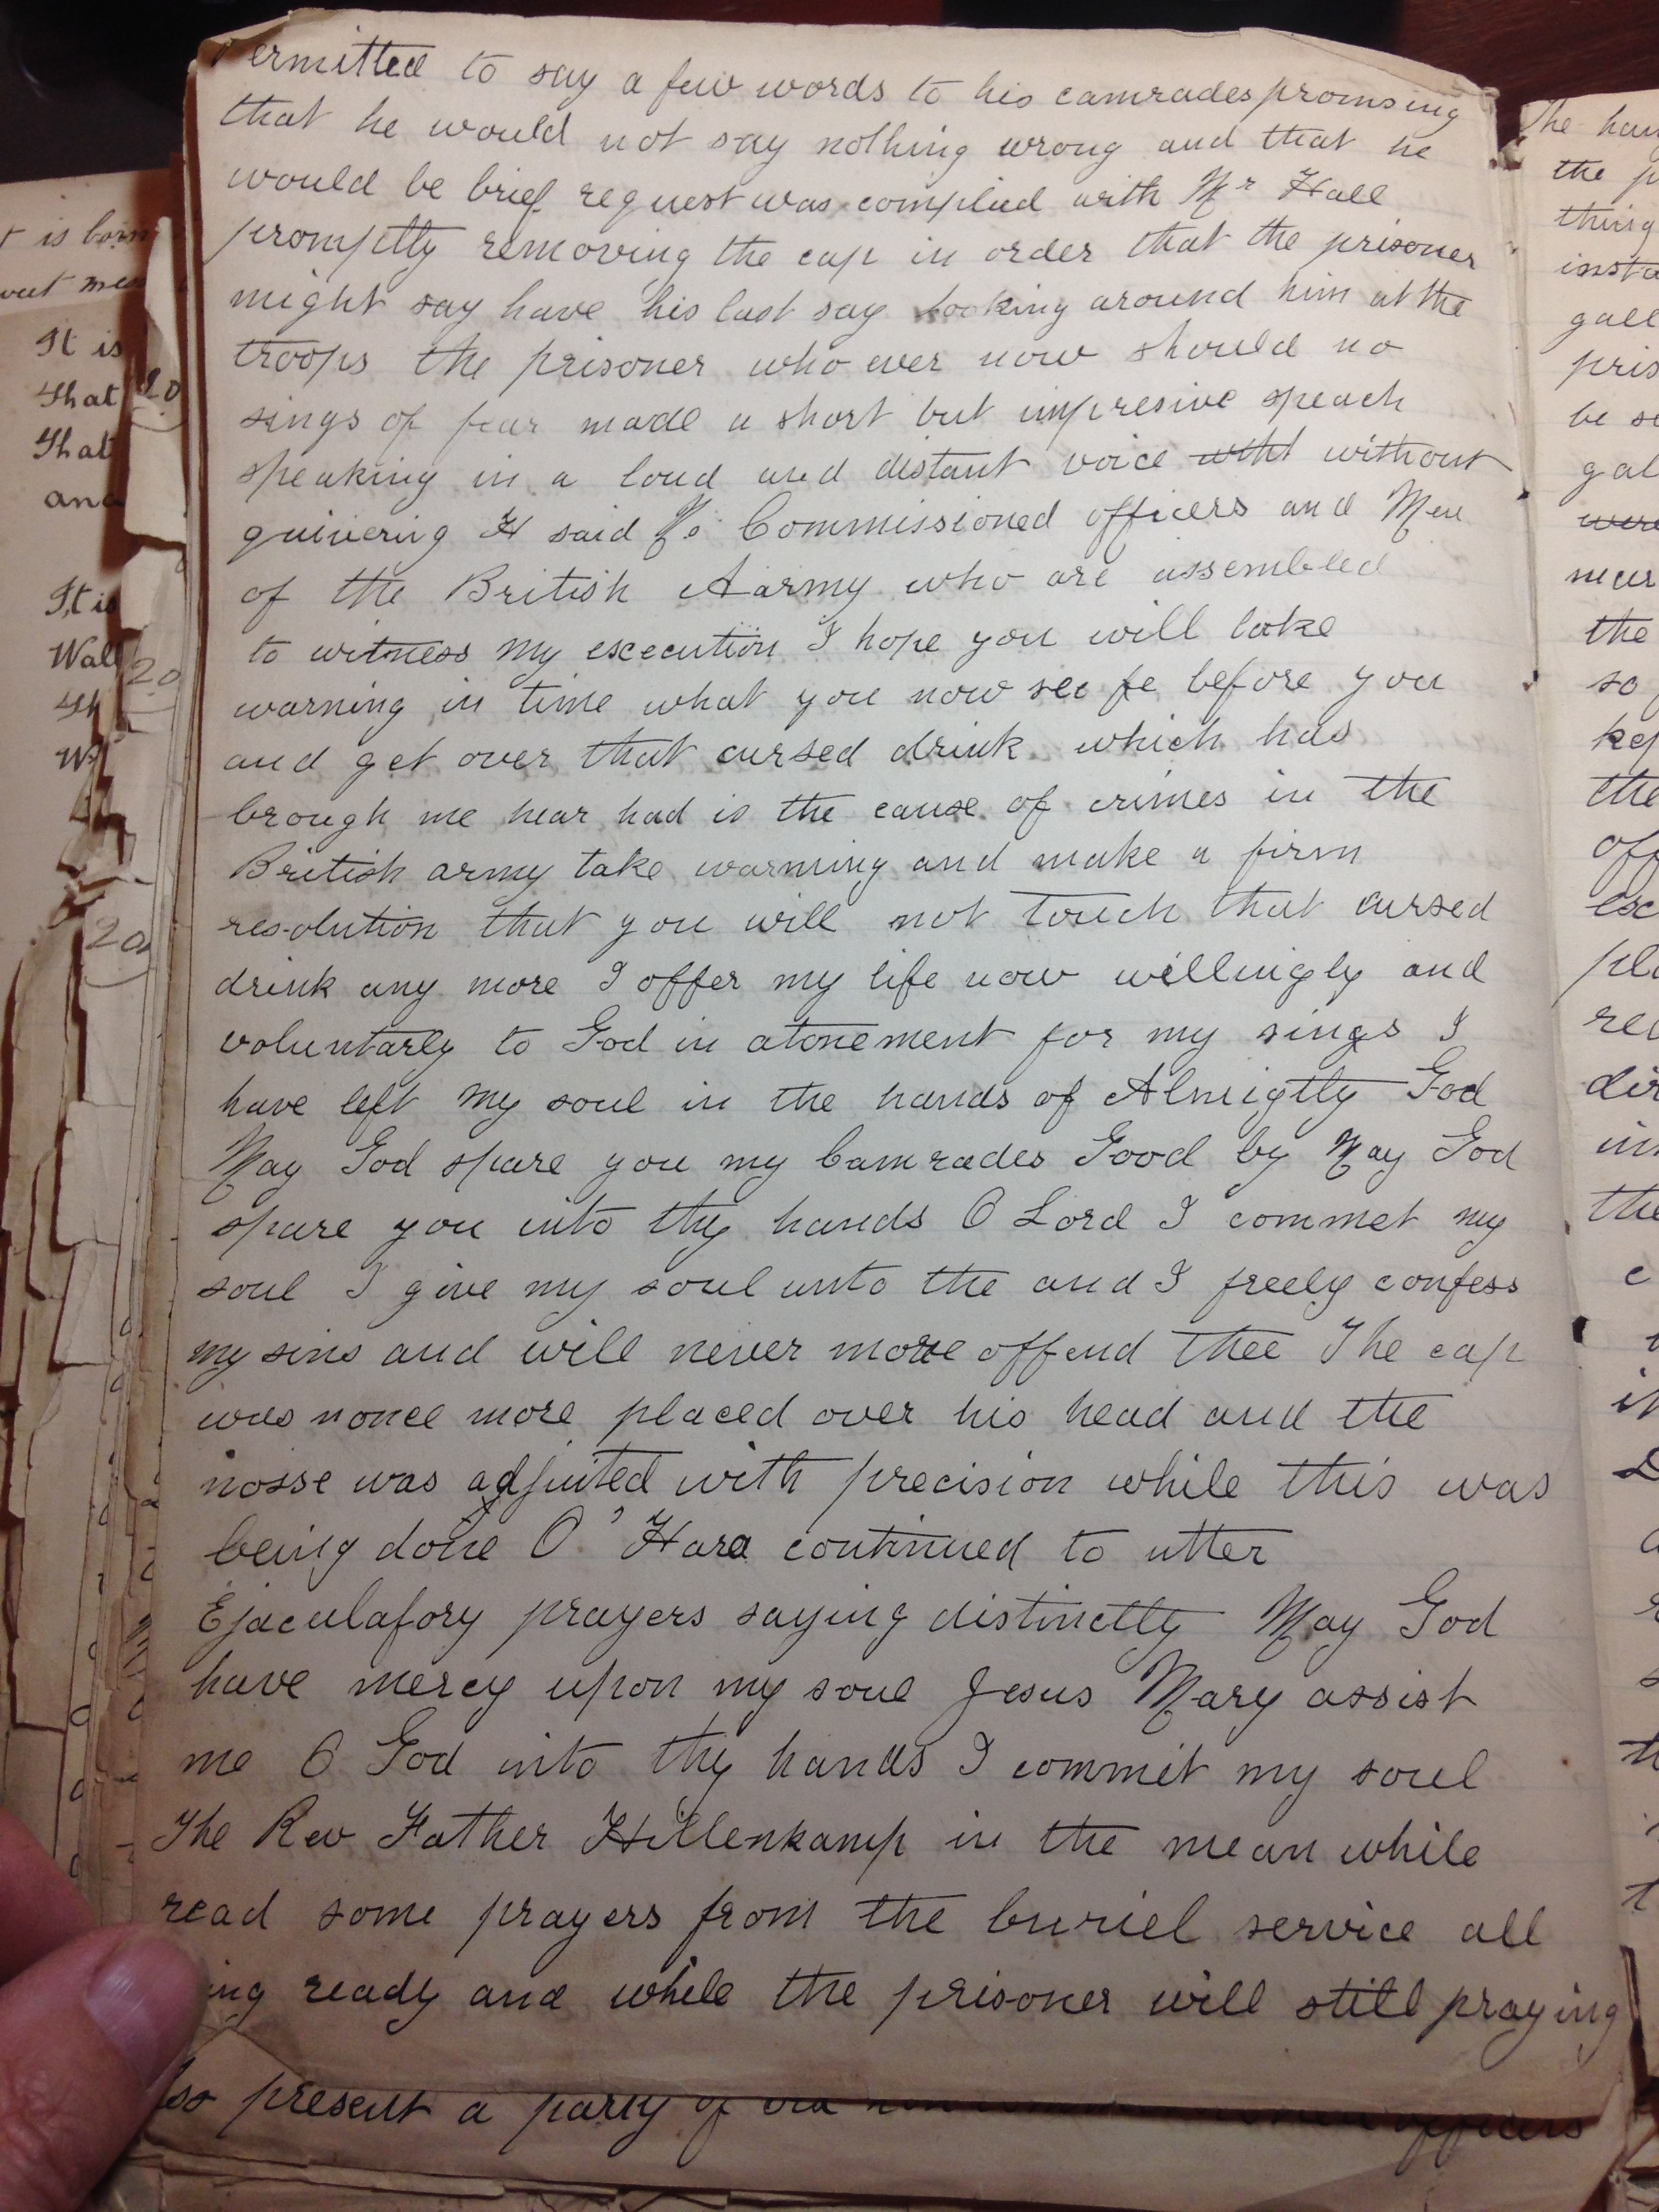 ermitted to say a few words to his camrades promsing
that he would not say nothing wrong and that he
would be brief request was complied with Mr Hall
promptly removing the cap in order that the prisoner
might say have his last say looking around him at the
troops the prisoner who ever now should no
sings of fear made a short but impresive speach
speaking in a loud and distant voice without
quivering H said Commissioned officers and Men
of the British Aarmy who are assembled
to witness my escecution I hope you will take
warning in time what you now see before you
and get over that cursed drink which has
brough me hear had is the cause of crimes in the
British army take warning and make a firm
resolution that you will not touch that cursed
drink any more I offer my life now willingly and
voluntarly to God in atonement for my sings I
have left my soul in the hands of Almigtly God
May God spare you my Camrades Good by May God
spare you into thy hands O Lord I commet my
soul I give my soul unto the and I freely confess
my sins and will never more offend thee The cap
was nonce more placed over his head and the
nosse was adjusted with precision while this was
being done O'Hara continued to utter
Ejaculafory prayers saying distinctly May God
have mercy upon my soul Jesus Mary assist
me O God into thy hands I commit my soul
The Rev Father Hillenkamp in the mean while
read some prayers from the buriel service all
ing ready and while the prisoner will still praying
so present a party of officers
It is
That
That
and
It is
20
20
The
the
thing
gall
pris
be
gal
were
the
so
the
the